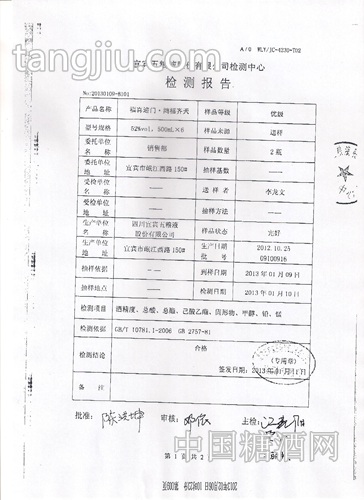 tangjiu.com
A/0 WLY/JC-4330-T02
检测中心
检测报告
No:20130109-8101
产品名称 福喜进门·鸿福齐天 样品等级 优级
型号规格 52%vol，500mL×6 样品来源 送样
委托单位名称 销售部 样品数量 2瓶
委托单位地址 宜宾市岷江西路150# 抽样基数 ——
受检单位名称 —— 送样者 李龙文
受检单位地址 —— 抽样方法 ——
生产单位名称 四川宜宾五粮液股份有限公司 样品状态 完好
生产单位地址 宜宾市岷江西路150# 生产日期批号 2012.10.25 09100916
抽样依据 —— 到样日期 2013年01月09日
抽样地点 —— 检测日期 2013年01月10日
检测项目 酒精度、总酸、总酯、己酸乙酯、固形物、甲醇、铅、锰
检测依据 GB/T 10781.1-2006 GB 2757-81
检测结论 合格
(专用章)
签发日期：2013年01月11日
备注
批准： 审核： 主检：
第1页共2
中国糖酒网
tangjiu.com